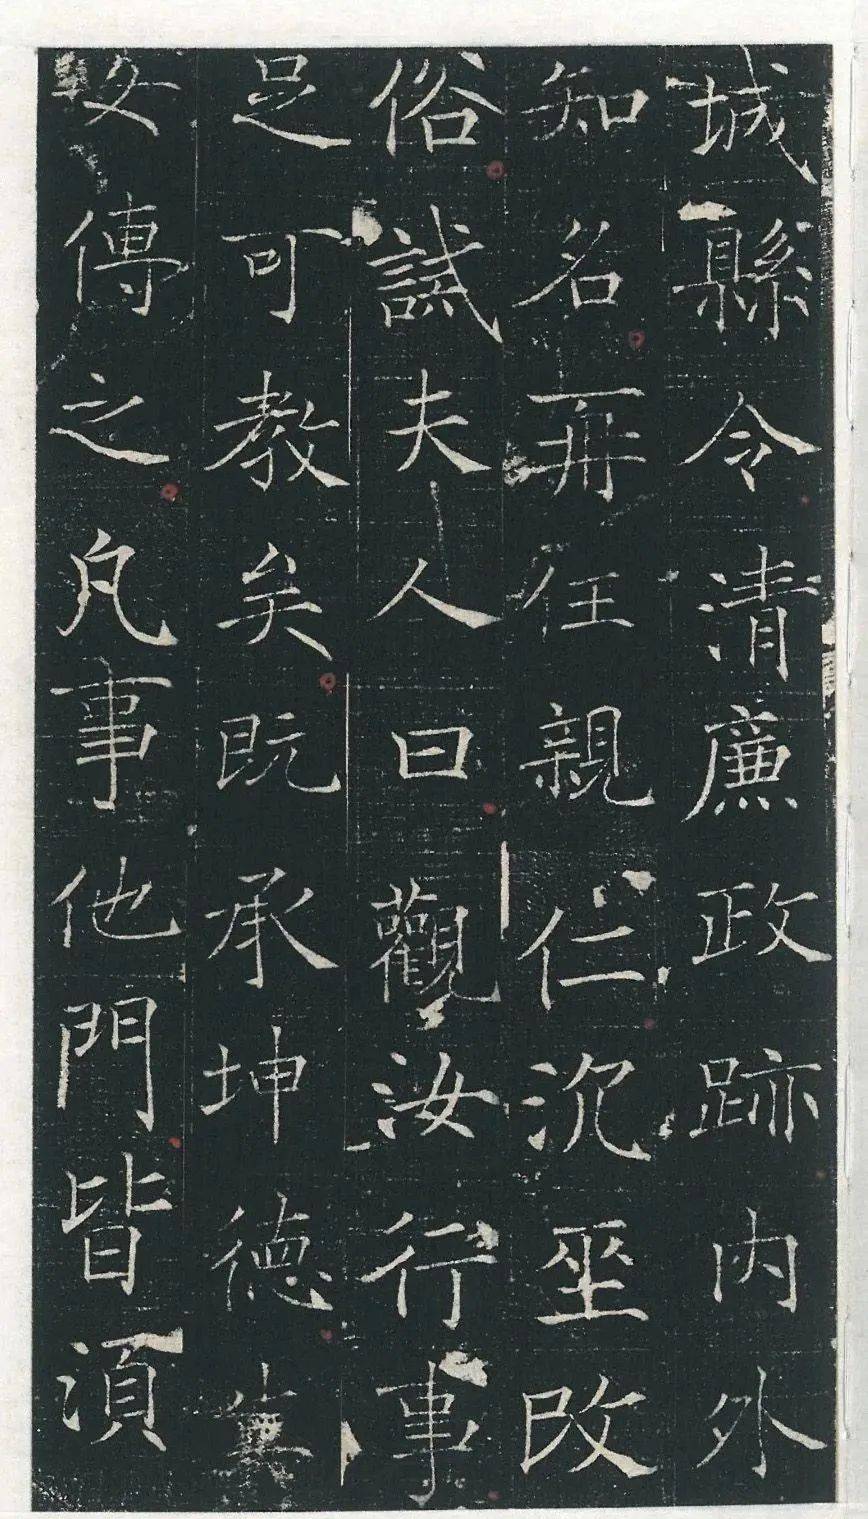 城縣令清廉政跡内外
知名再任親仁沉坐改
俗誡夫人曰觀汝行事
足可教矣既承坤德
傳之凡事他門皆須